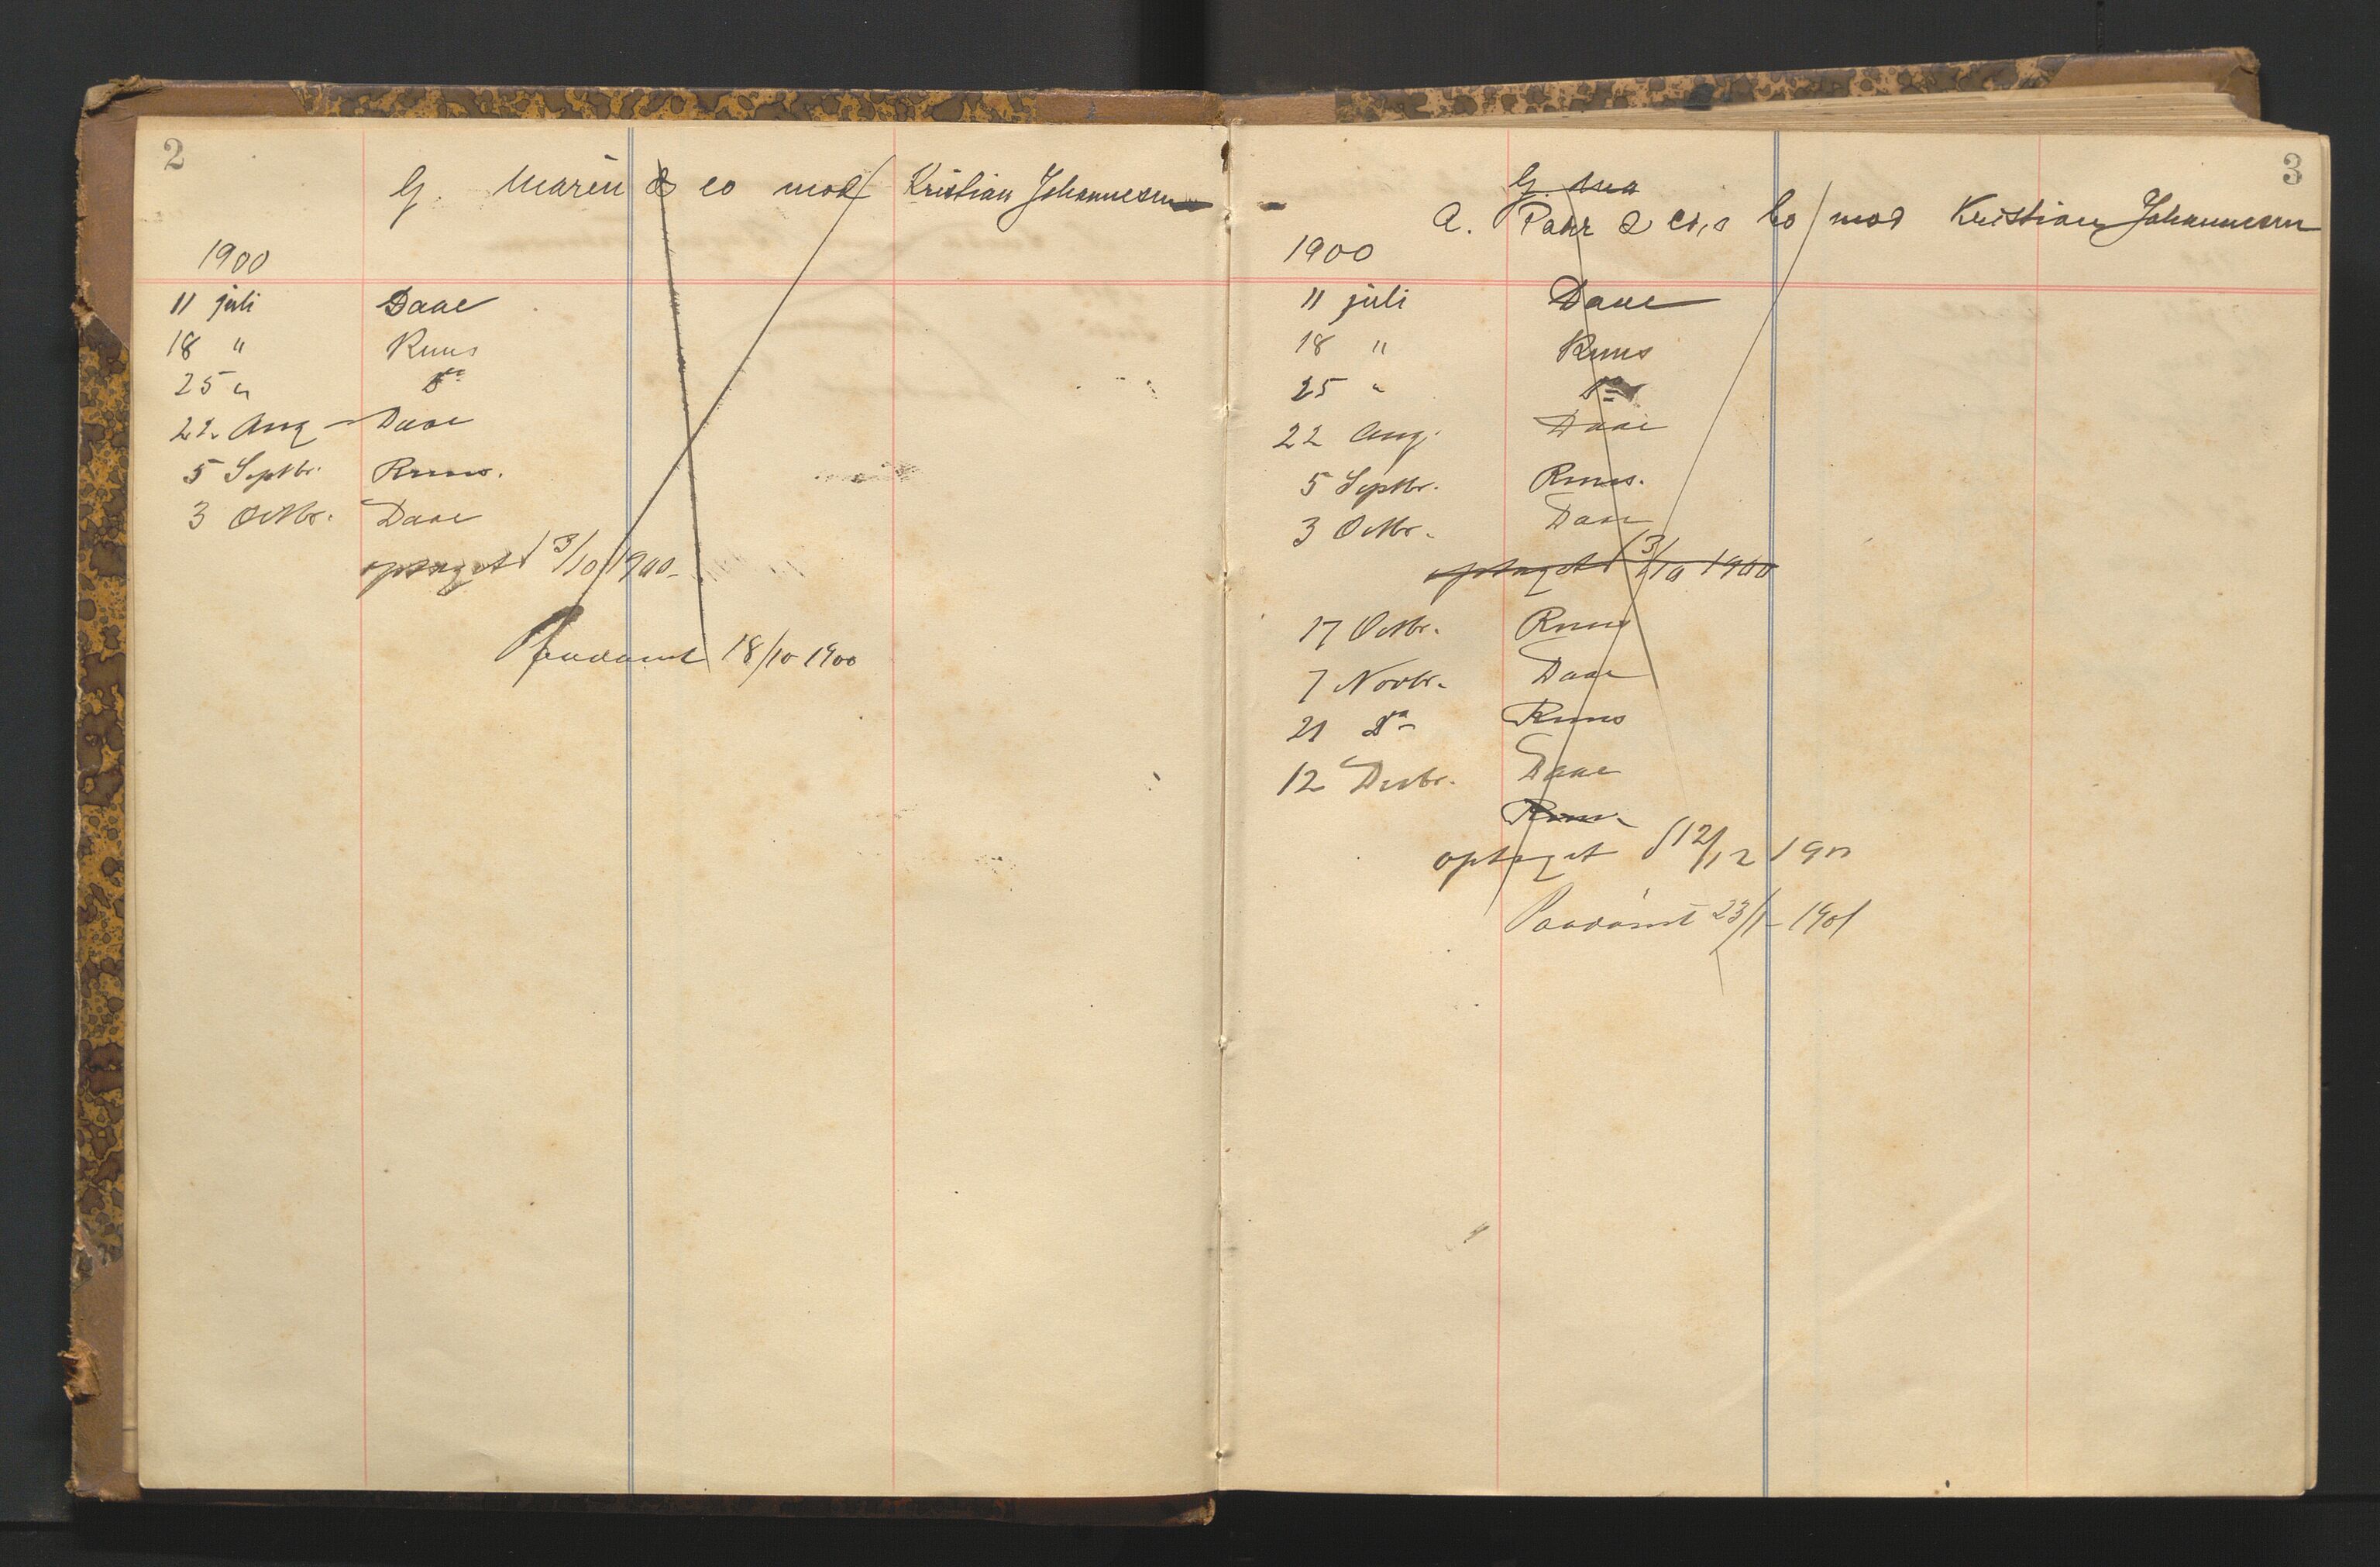 2
G. Marin & co mod Kristian Johannesen
1900
11 juli Daae
18 " Ruus
25 " Do
22. Aug - Daae
5 Septbr. Ruus.
3 Octbr. Daae
optaget d 3/10 1900-
Paadømt 18/10 1900
3
G. Ma
A. Pahr & co,s Co mod Kristian Johannesen
1900
11 juli Daae
18 " Ruus
25 " Do
22 Aug. Daae
5 Septbr. Ruus.
3 Octbr. Daae
optaget d 3/10 1900
17 Octbr. Ruus
7 Novbr. Daae
21 Do Ruus
12 Decbr. Daae
Ruus.
optaget d 12/12 1900
Paadømt 23/1 - 1901